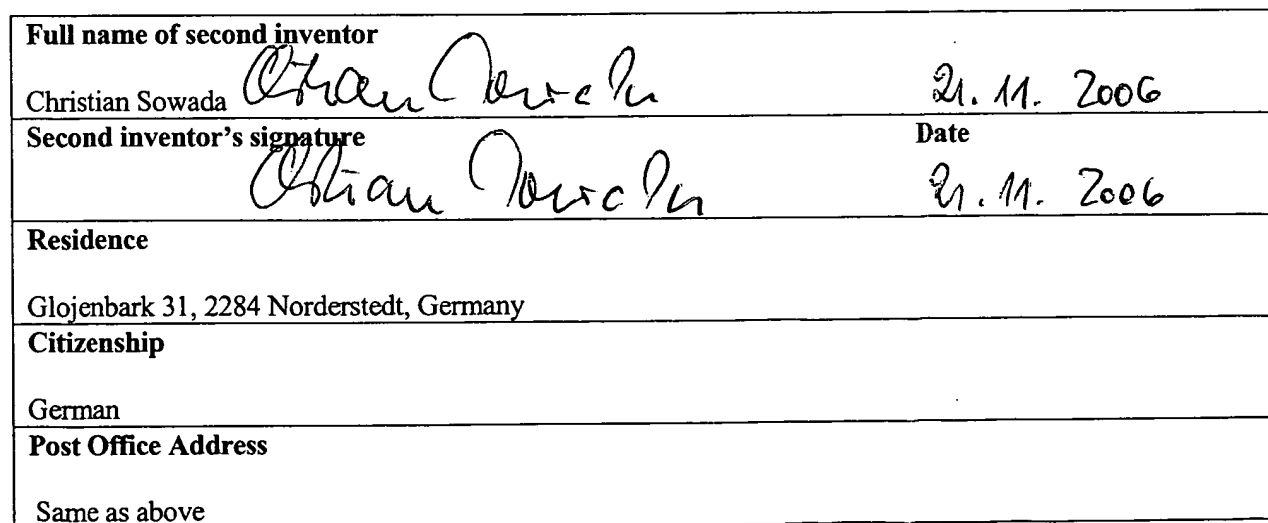 Full name of second inventor
Christian Sowada Christian Sowada 21. 11. 2006
Second inventor's signature Date
Christian Sowada 21. 11. 2006
Residence
Glojenbark 31, 2284 Norderstedt, Germany
Citizenship
German
Post Office Address
Same as above